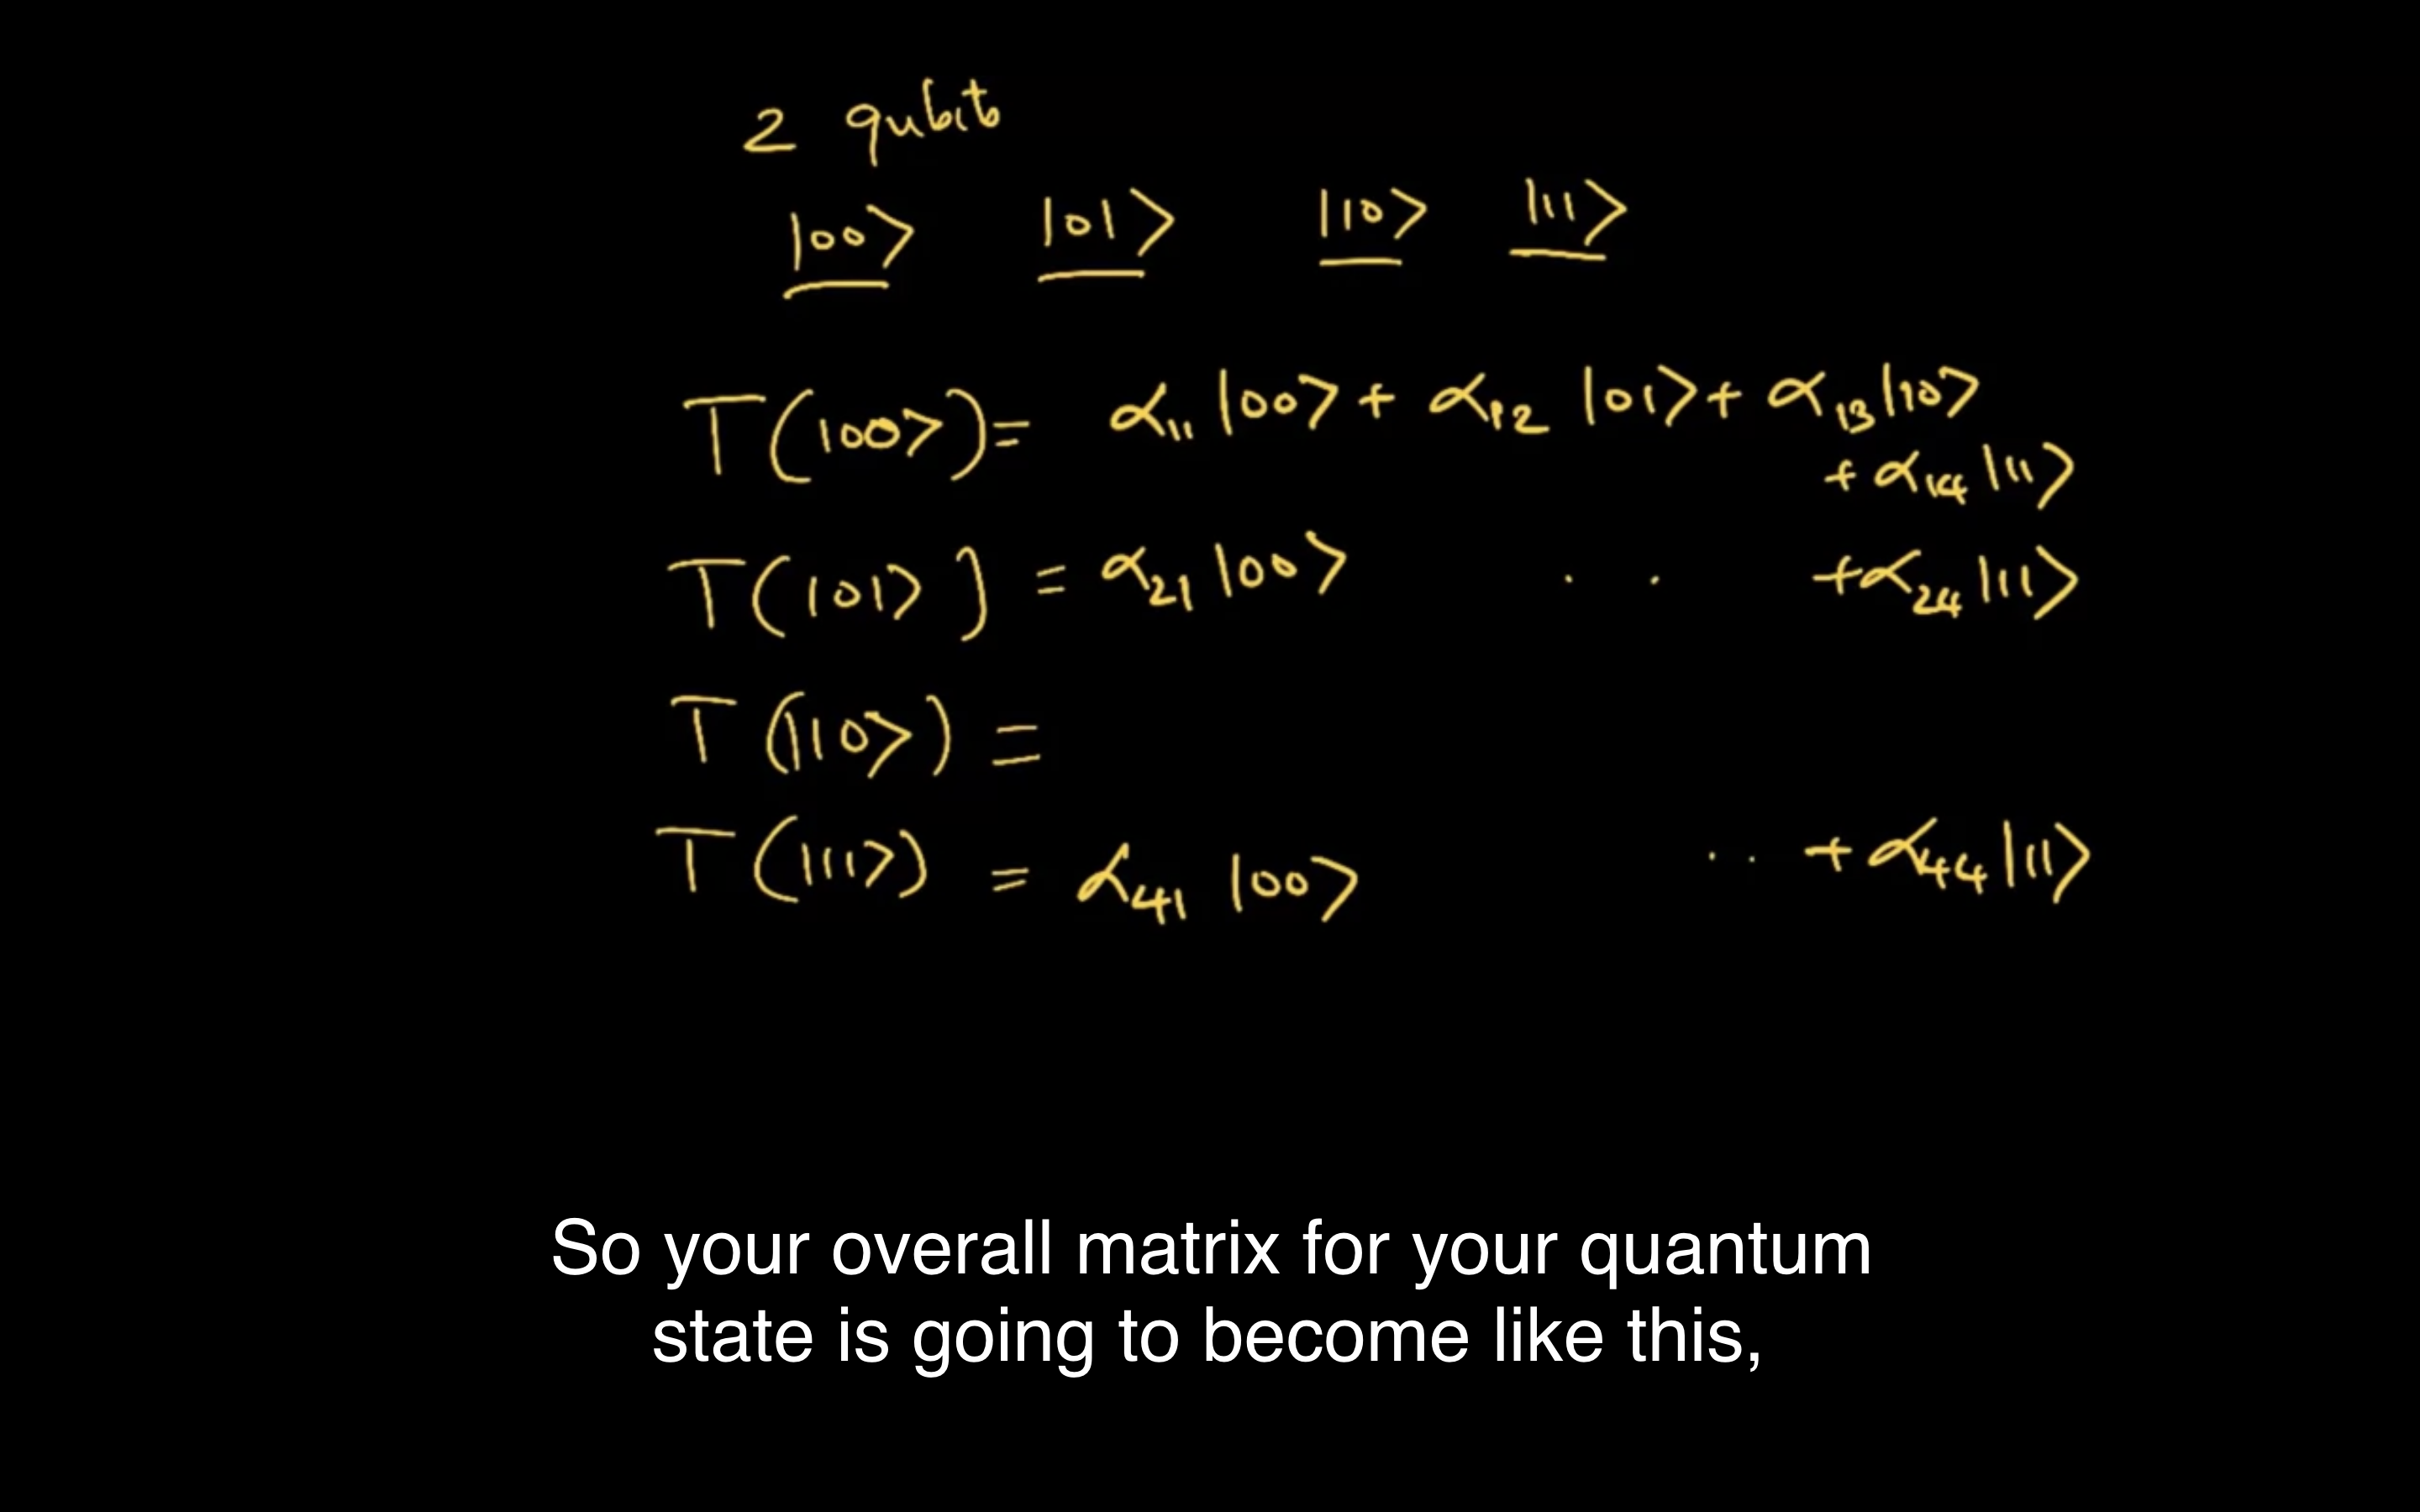 2 qubit
|00⟩ |01⟩ |10⟩ |11⟩
T(|00⟩) = α₁₁|00⟩ + α₁₂|01⟩ + α₁₃|10⟩
+ α₁₄|11⟩
T(|01⟩) = α₂₁|00⟩ . . + α₂₄|11⟩
T(|10⟩) =
T(|11⟩) = α₄₁|00⟩ .. + α₄₄|11⟩
So your overall matrix for your quantum
state is going to become like this,